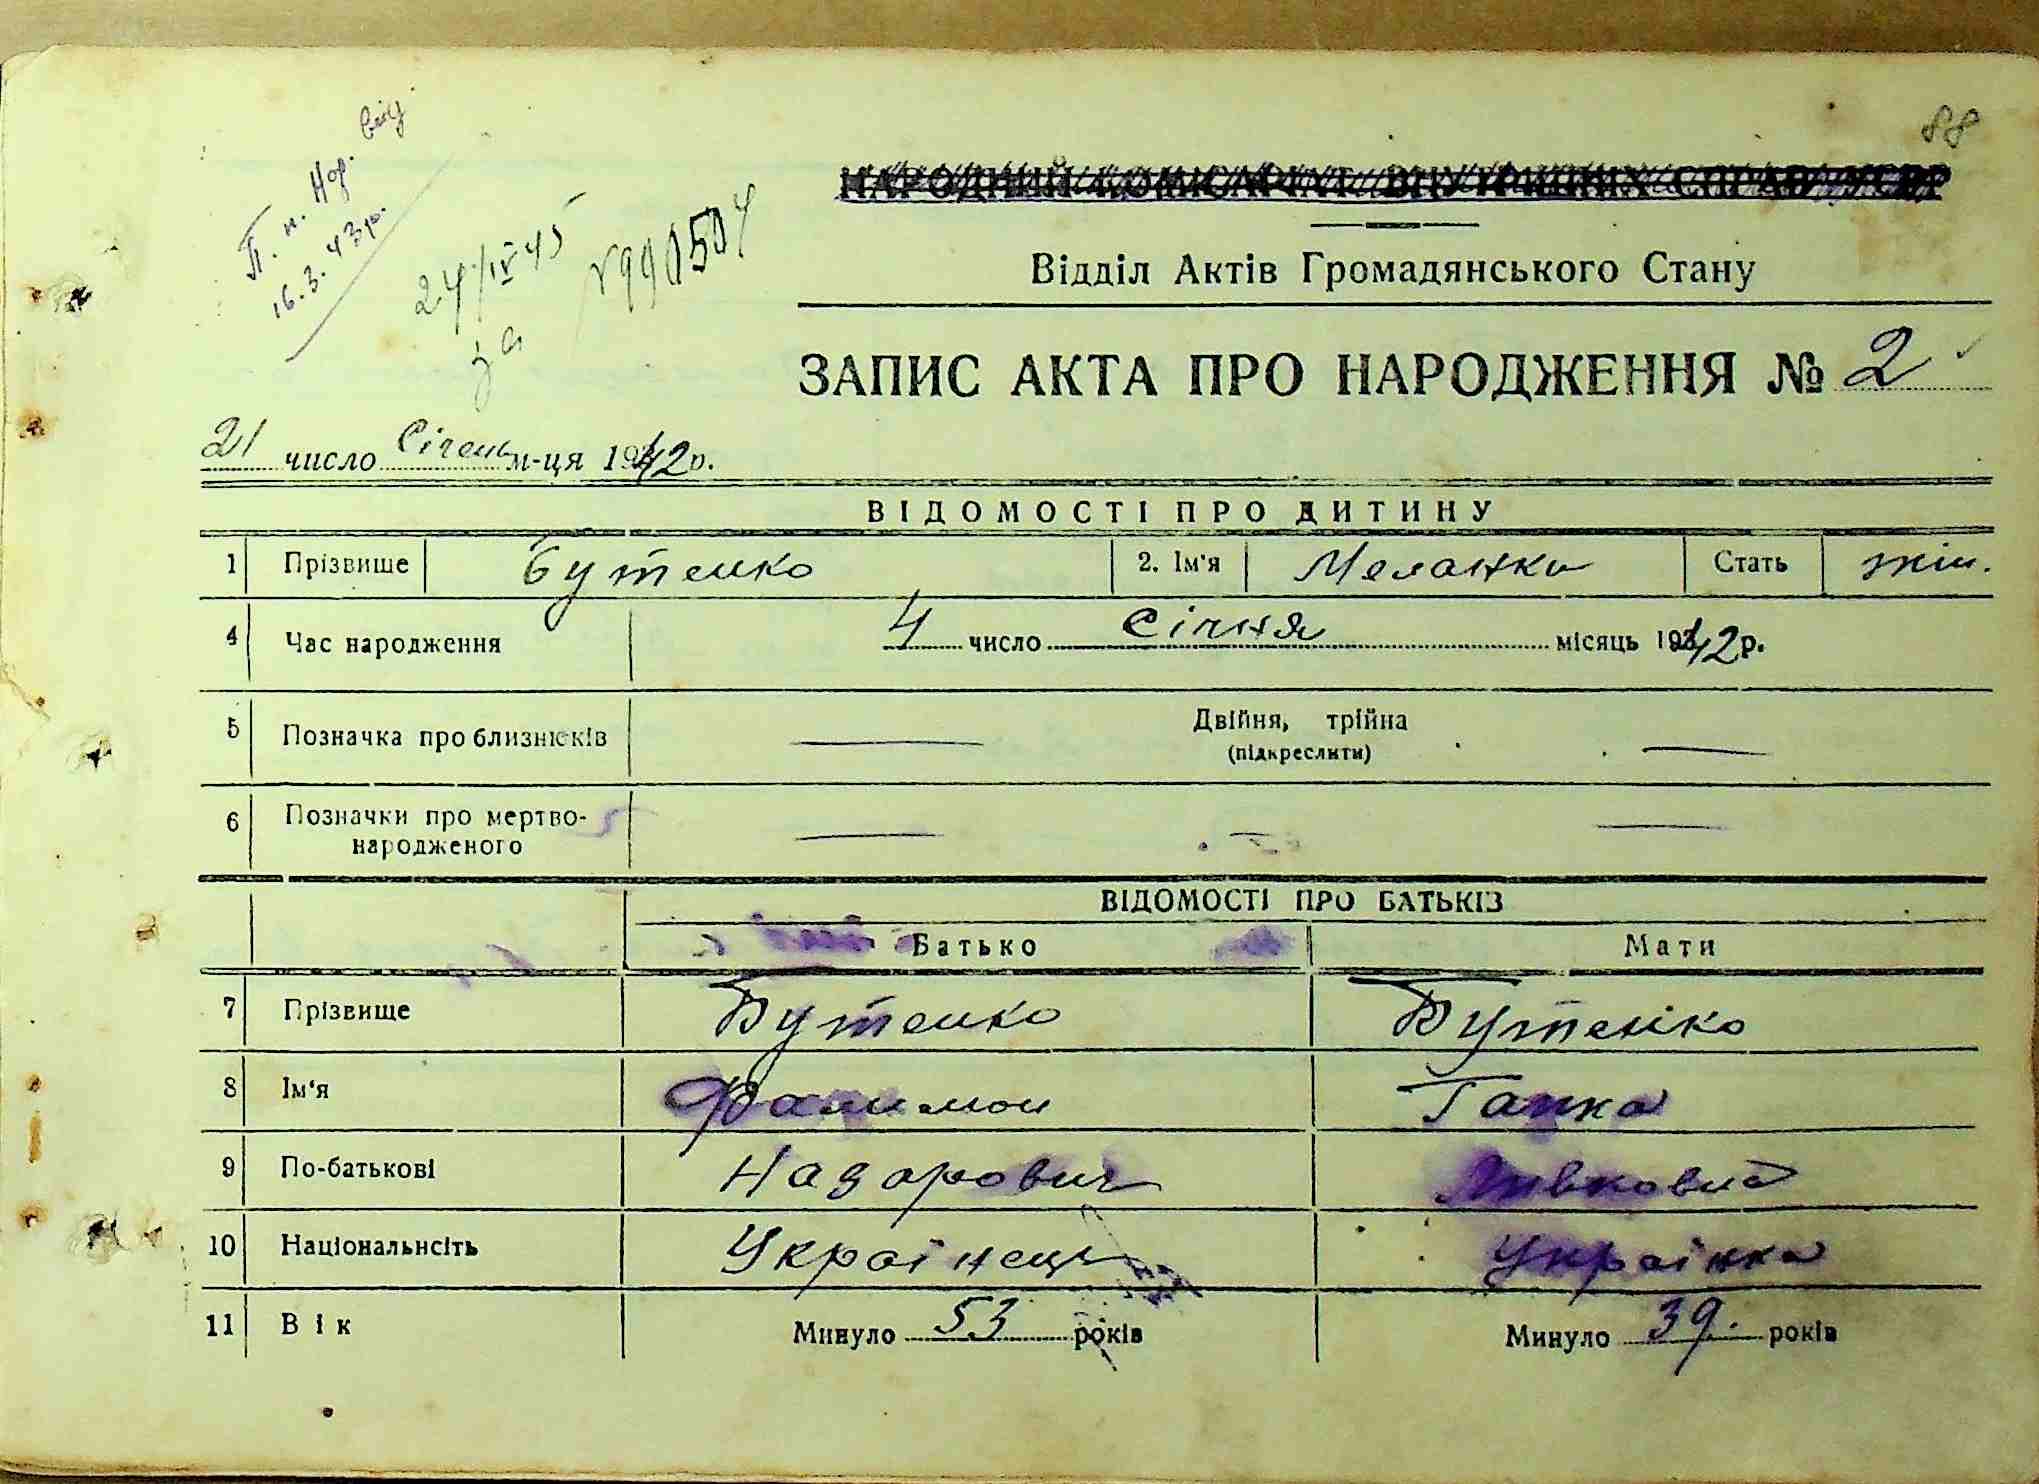 88
П. н. Нар.
16.3.43р.
24/IV 45
за
НАРОДНИЙ КОМІСАРІАТ ВНУТРІШНІХ СПРАВ УСРР
Відділ Актів Громадянського Стану
ЗАПИС АКТА ПРО НАРОДЖЕННЯ № 2
21 число Січень м-ця 1942р.
ВІДОМОСТІ ПРО ДИТИНУ
1 Прізвище Бутенко 2. Ім'я Меланка Стать жін.
4 Час народження 4 число Січня місяць 1942р.
5 Позначка про близнюків Двійня, трійна
(підкреслити)
6 Позначки про мертво-
народженого
ВІДОМОСТІ ПРО БАТЬКІЗ
Батько Мати
7 Прізвище Бутенко Бутенко
8 Ім'я Филимон Гапка
9 По-батькові Назарович
10 Національнсіть Українець Українка
11 Вік Минуло 53 років Минуло 39. років